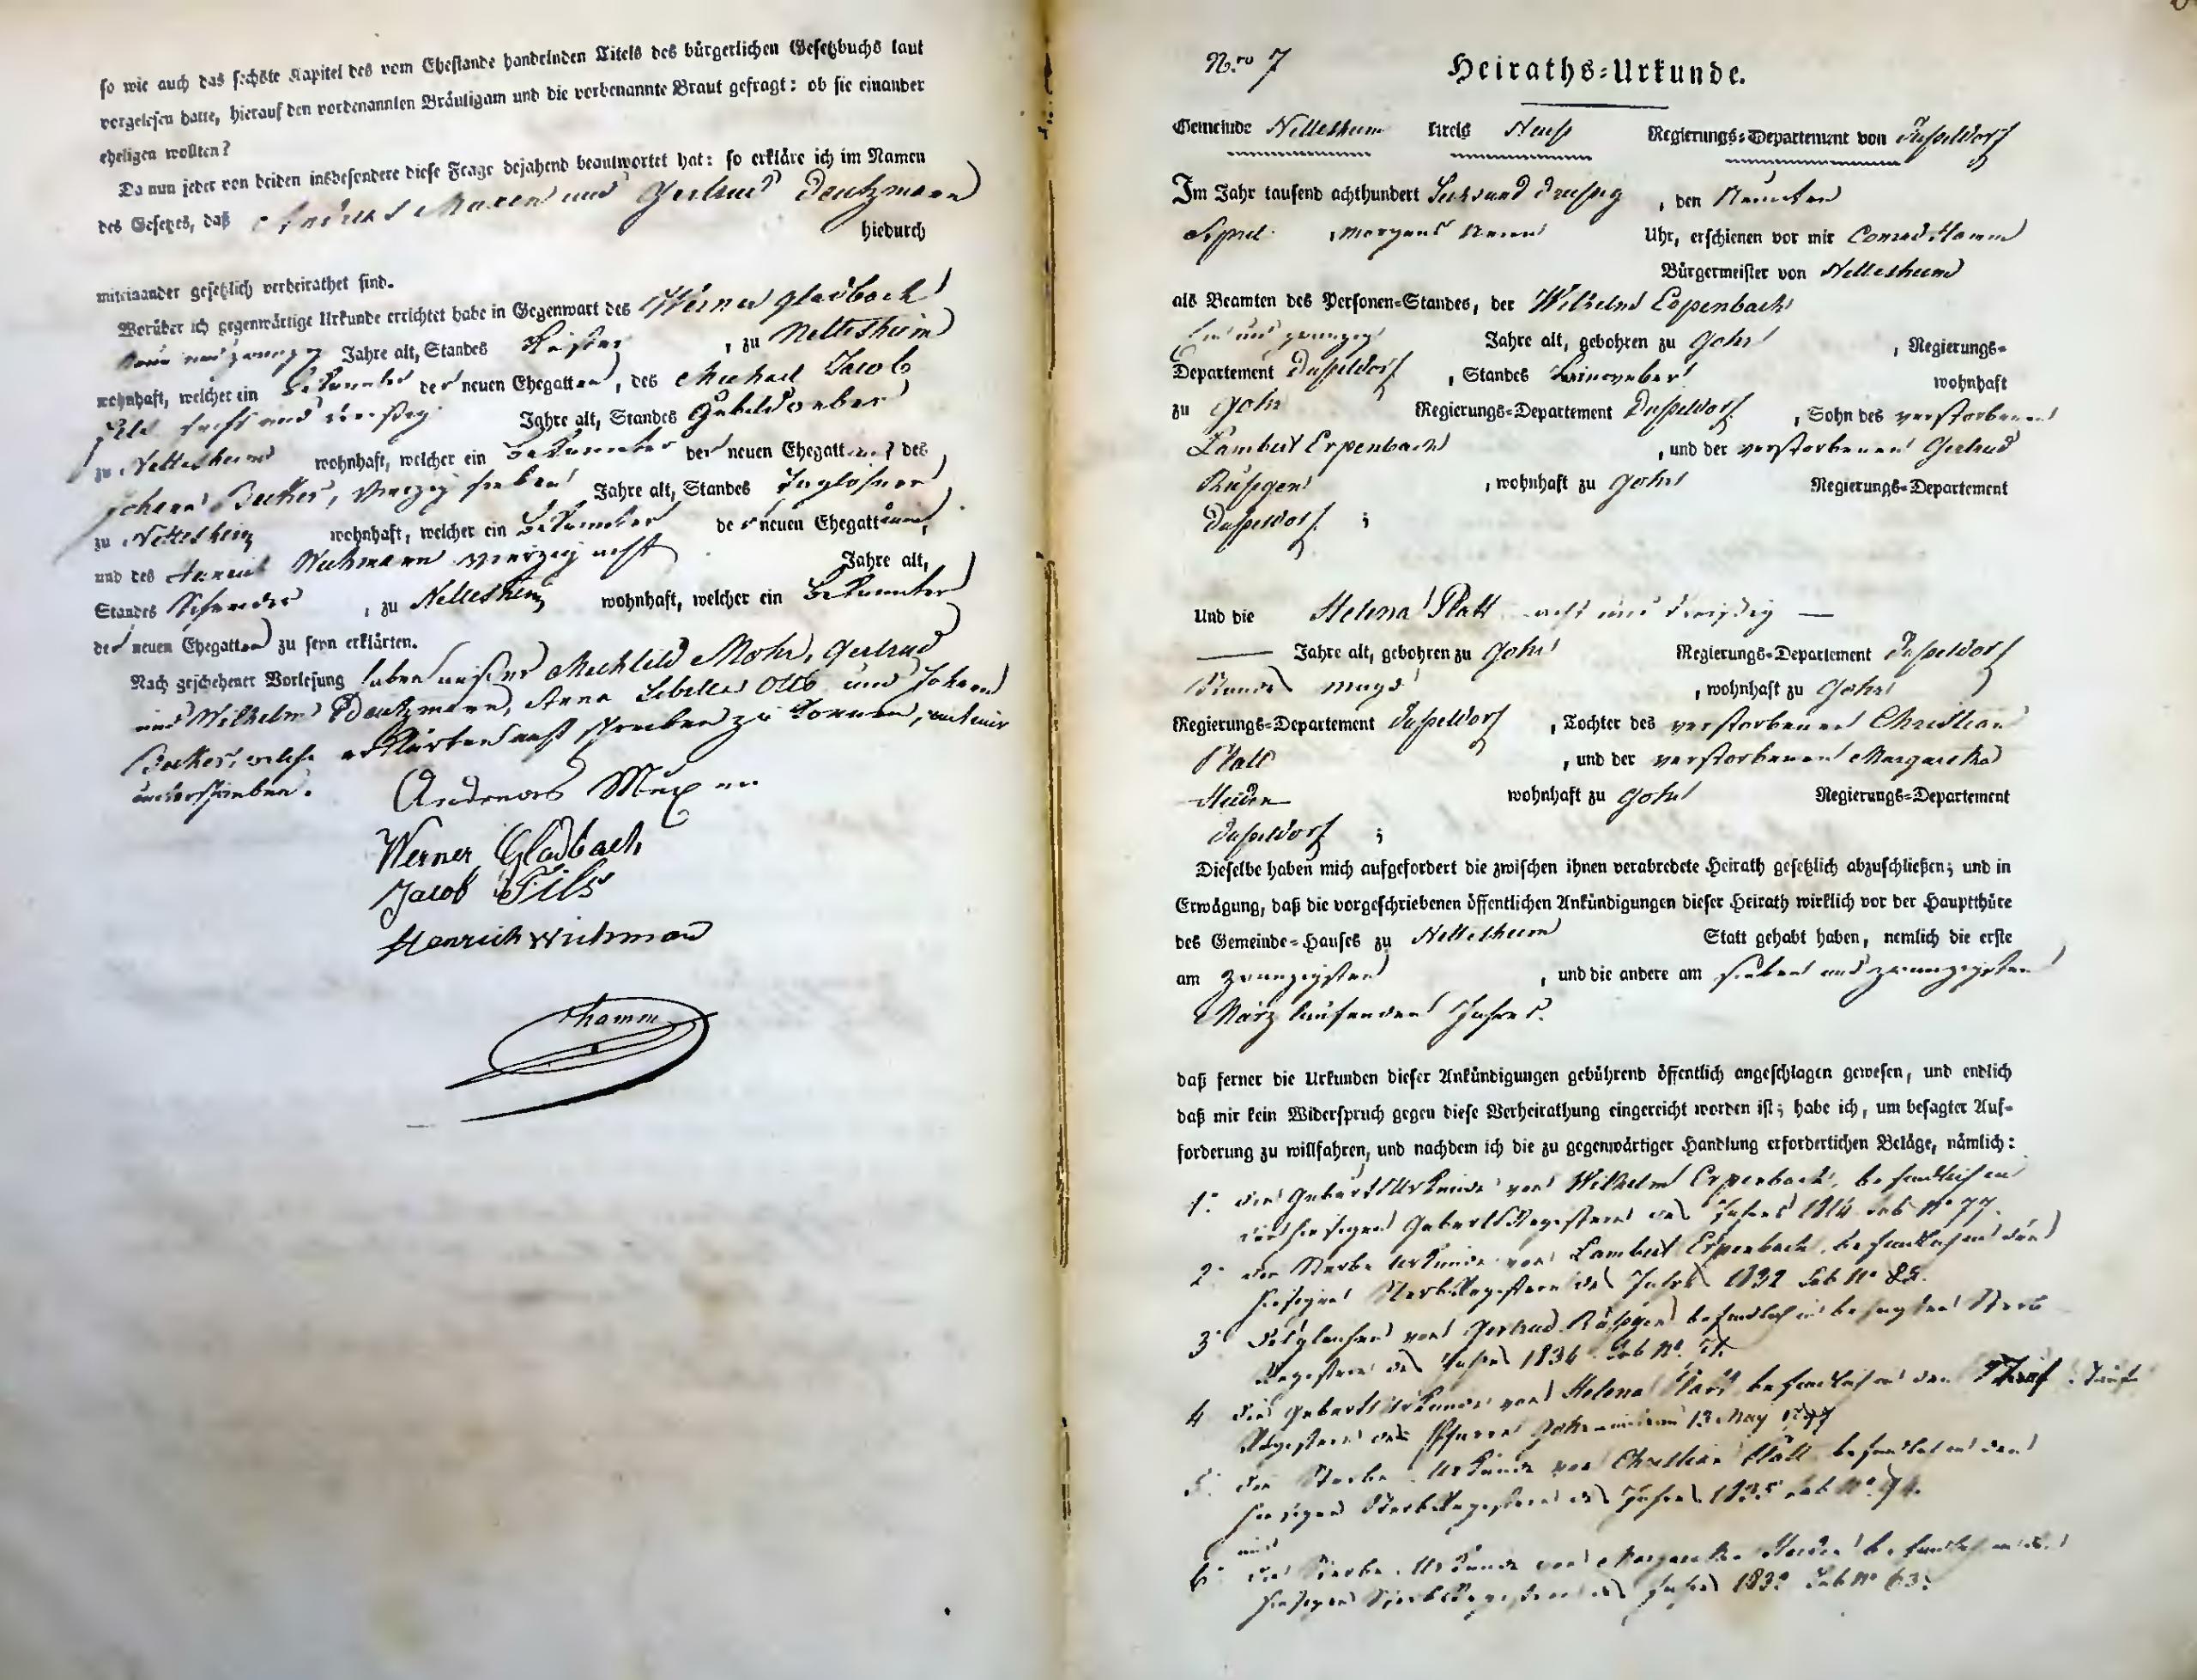 so wie auch das sechste Kapitel des vom Ehestande handelnden Titels des bürgerlichen Gesetzbuchs laut
vorgelesen hatte, hierauf den vorbenannten Bräutigam und die vorbenannte Braut gefragt: ob sie einander
eheligen wollten?
Da nun jeder von beiden insbesondere diese Frage bejahend beantwortet hat: so erkläre ich im Namen
des Gesetzes, daß Andreas Maxen und Gertrud Deutzmann
hiedurch
miteinander gesetzlich verheirathet sind.
Worüber ich gegenwärtige Urkunde errichtet habe in Gegenwart des Werner Gladbach
neun und zwanzig Jahre alt, Standes Küster, zu Nettesheim
wohnhaft, welcher ein Bekannter der neuen Ehegatten, des Michael Jacob
Fils sechs und dreißig Jahre alt, Standes Gebildweber
zu Nettesheim wohnhaft, welcher ein Bekannter der neuen Ehegatten, des
Johann Becker, vierzig sieben Jahre alt, Standes Taglöhner
zu Nettesheim wohnhaft, welcher ein Bekannter der neuen Ehegatten,
und des Henrich Wichmann vierzig acht Jahre alt,
Standes Schneider, zu Nettesheim wohnhaft, welcher ein Bekannter
der neuen Ehegatten zu seyn erklärten.
Nach geschehener Vorlesung haben außer Mechtild Mohr, Gertrud
und Wilhelm Deutzmann, Anna Sibilla Otto und Johann
Becker, welche erklärten nicht schreiben zu können, mit mir
unterschrieben.
Andreas Maxen
Werner Gladbach
Jacob Fils
Henrich Wichman
Hamm
Nro 7
Heiraths-Urkunde.
Gemeinde Nettesheim Kreis Neuß Regierungs-Departement von Düsseldorf
Im Jahr tausend achthundert Sechs und Dreißig, den Neunten
April Morgens neun Uhr, erschienen vor mir Conrad Hamm
Bürgermeister von Nettesheim
als Beamten des Personen-Standes, der Wilhelm Erpenbach
ein und zwanzig Jahre alt, gebohren zu Gohr, Regierungs-
Departement Düsseldorf, Standes Leinenweber wohnhaft
zu Gohr Regierungs-Departement Düsseldorf, Sohn des verstorbenen
Lambert Erpenbach, und der verstorbenen Gertrud
Rüßgen, wohnhaft zu Gohr Regierungs-Departement
Düsseldorf;
Und die Helena Platt acht und dreißig
Jahre alt, gebohren zu Gohr Regierungs-Departement Düsseldorf
Standes Magd, wohnhaft zu Gohr
Regierungs-Departement Düsseldorf, Tochter des verstorbenen Christian
Platt, und der verstorbenen Margaretha
Heiden wohnhaft zu Gohr Regierungs-Departement
Düsseldorf;
Dieselbe haben mich aufgefordert die zwischen ihnen verabredete Heirath gesetzlich abzuschließen; und in
Erwägung, daß die vorgeschriebenen öffentlichen Ankündigungen dieser Heirath wirklich vor der Hauptthüre
des Gemeinde-Hauses zu Nettesheim Statt gehabt haben, nemlich die erste
am zwanzigsten, und die andere am sieben und zwanzigsten
März laufenden Jahres.
daß ferner die Urkunden dieser Ankündigungen gebührend öffentlich angeschlagen gewesen, und endlich
daß mir kein Widerspruch gegen diese Verheirathung eingereicht worden ist; habe ich, um besagter Auf-
forderung zu willfahren, und nachdem ich die zu gegenwärtiger Handlung erforderlichen Beläge, nämlich:
1. die Geburts Urkunde von Wilhelm Erpenbach, befindlich in
den hiesigen Geburts Registern des Jahres 1814 sub No 77.
2. die Sterbe Urkunde von Lambert Erpenbach, befindlich in den
hiesigen Sterb Registern des Jahres 1832 sub No
3. desgleichen von Gertrud Rüßgen befindlich in besagten Sterb
Registern des Jahres sub No
4. die Geburts Urkunde von Helena Platt befindlich in den Tauf
Registern der Pfarre Gohr 13 May
5. die Sterbe Urkunde von Christian Platt befindlich in den
hiesigen Sterb Registern des Jahres sub No
und
6. die Sterbe Urkunde von Margaretha Heiden befindlich in den
hiesigen Sterb Registern des Jahres sub No 63.